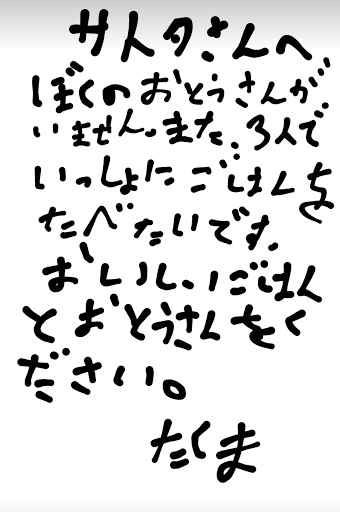 サンタさんへ
ぼくのおとうさんが
いません。また、3人で
いっしょにごはんを
たべたいです。
おいしいごはん
とおとうさんをく
ださい。
たくま